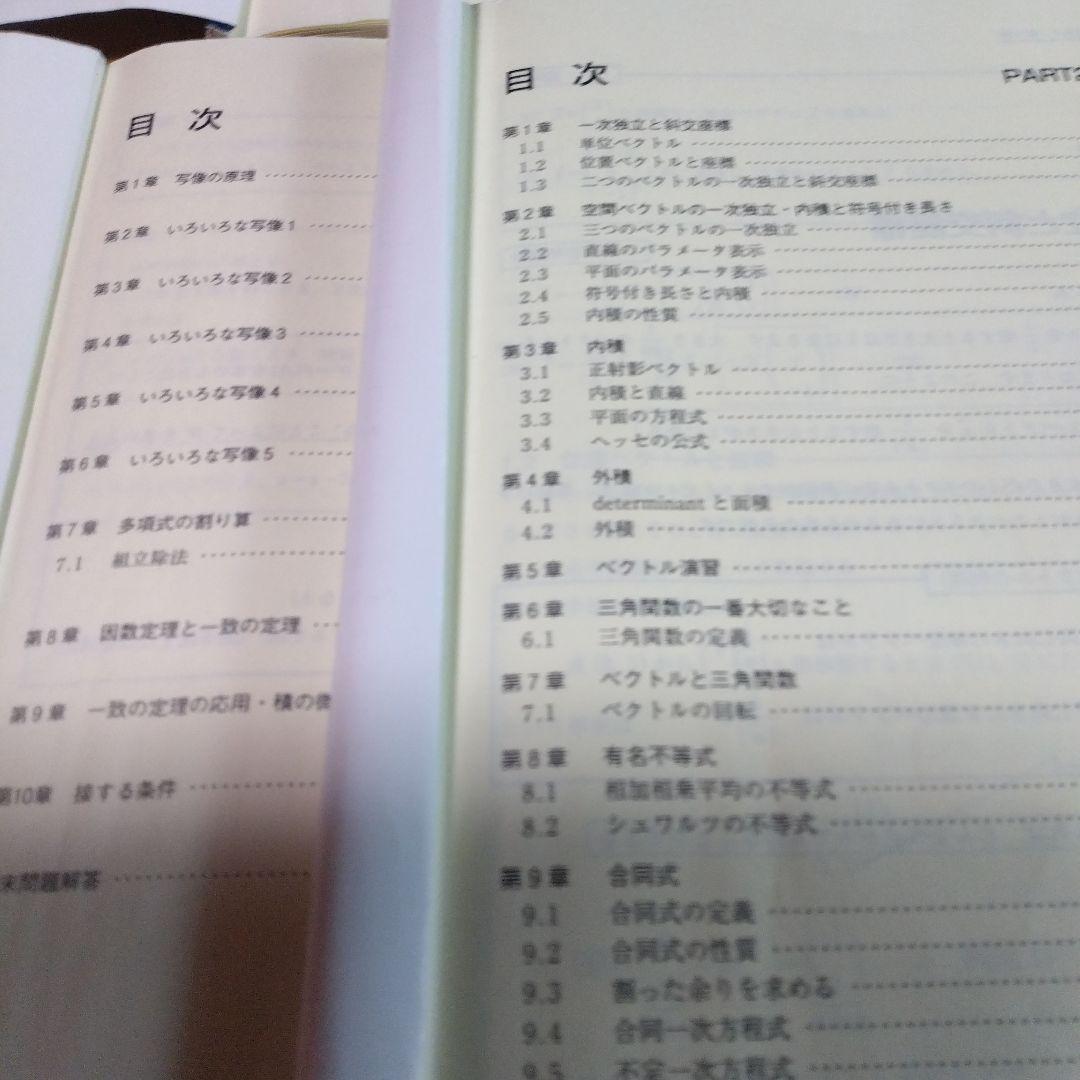 目 次
第1章 写像の原理
第2章 いろいろな写像1
第3章 いろいろな写像2
第4章 いろいろな写像3
第5章 いろいろな写像4
第6章 いろいろな写像5
第7章 多項式の割り算
7.1 組立除法
第8章 因数定理と一致の定理
第9章 一致の定理の応用・積の微
第10章 接する条件
末問題解答
目 次
PART2
第1章 一次独立と斜交座標
1.1 単位ベクトル
1.2 位置ベクトルと座標
1.3 二つのベクトルの一次独立と斜交座標
第2章 空間ベクトルの一次独立・内積と符号付き長さ
2.1 三つのベクトルの一次独立
2.2 直線のパラメータ表示
2.3 平面のパラメータ表示
2.4 符号付き長さと内積
2.5 内積の性質
第3章 内積
3.1 正射影ベクトル
3.2 内積と直線
3.3 平面の方程式
3.4 ヘッセの公式
第4章 外積
4.1 determinantと面積
4.2 外積
第5章 ベクトル演習
第6章 三角関数の一番大切なこと
6.1 三角関数の定義
第7章 ベクトルと三角関数
7.1 ベクトルの回転
第8章 有名不等式
8.1 相加相乗平均の不等式
8.2 シュワルツの不等式
第9章 合同式
9.1 合同式の定義
9.2 合同式の性質
9.3 割った余りを求める
9.4 合同一次方程式
9.5 不定一次方程式